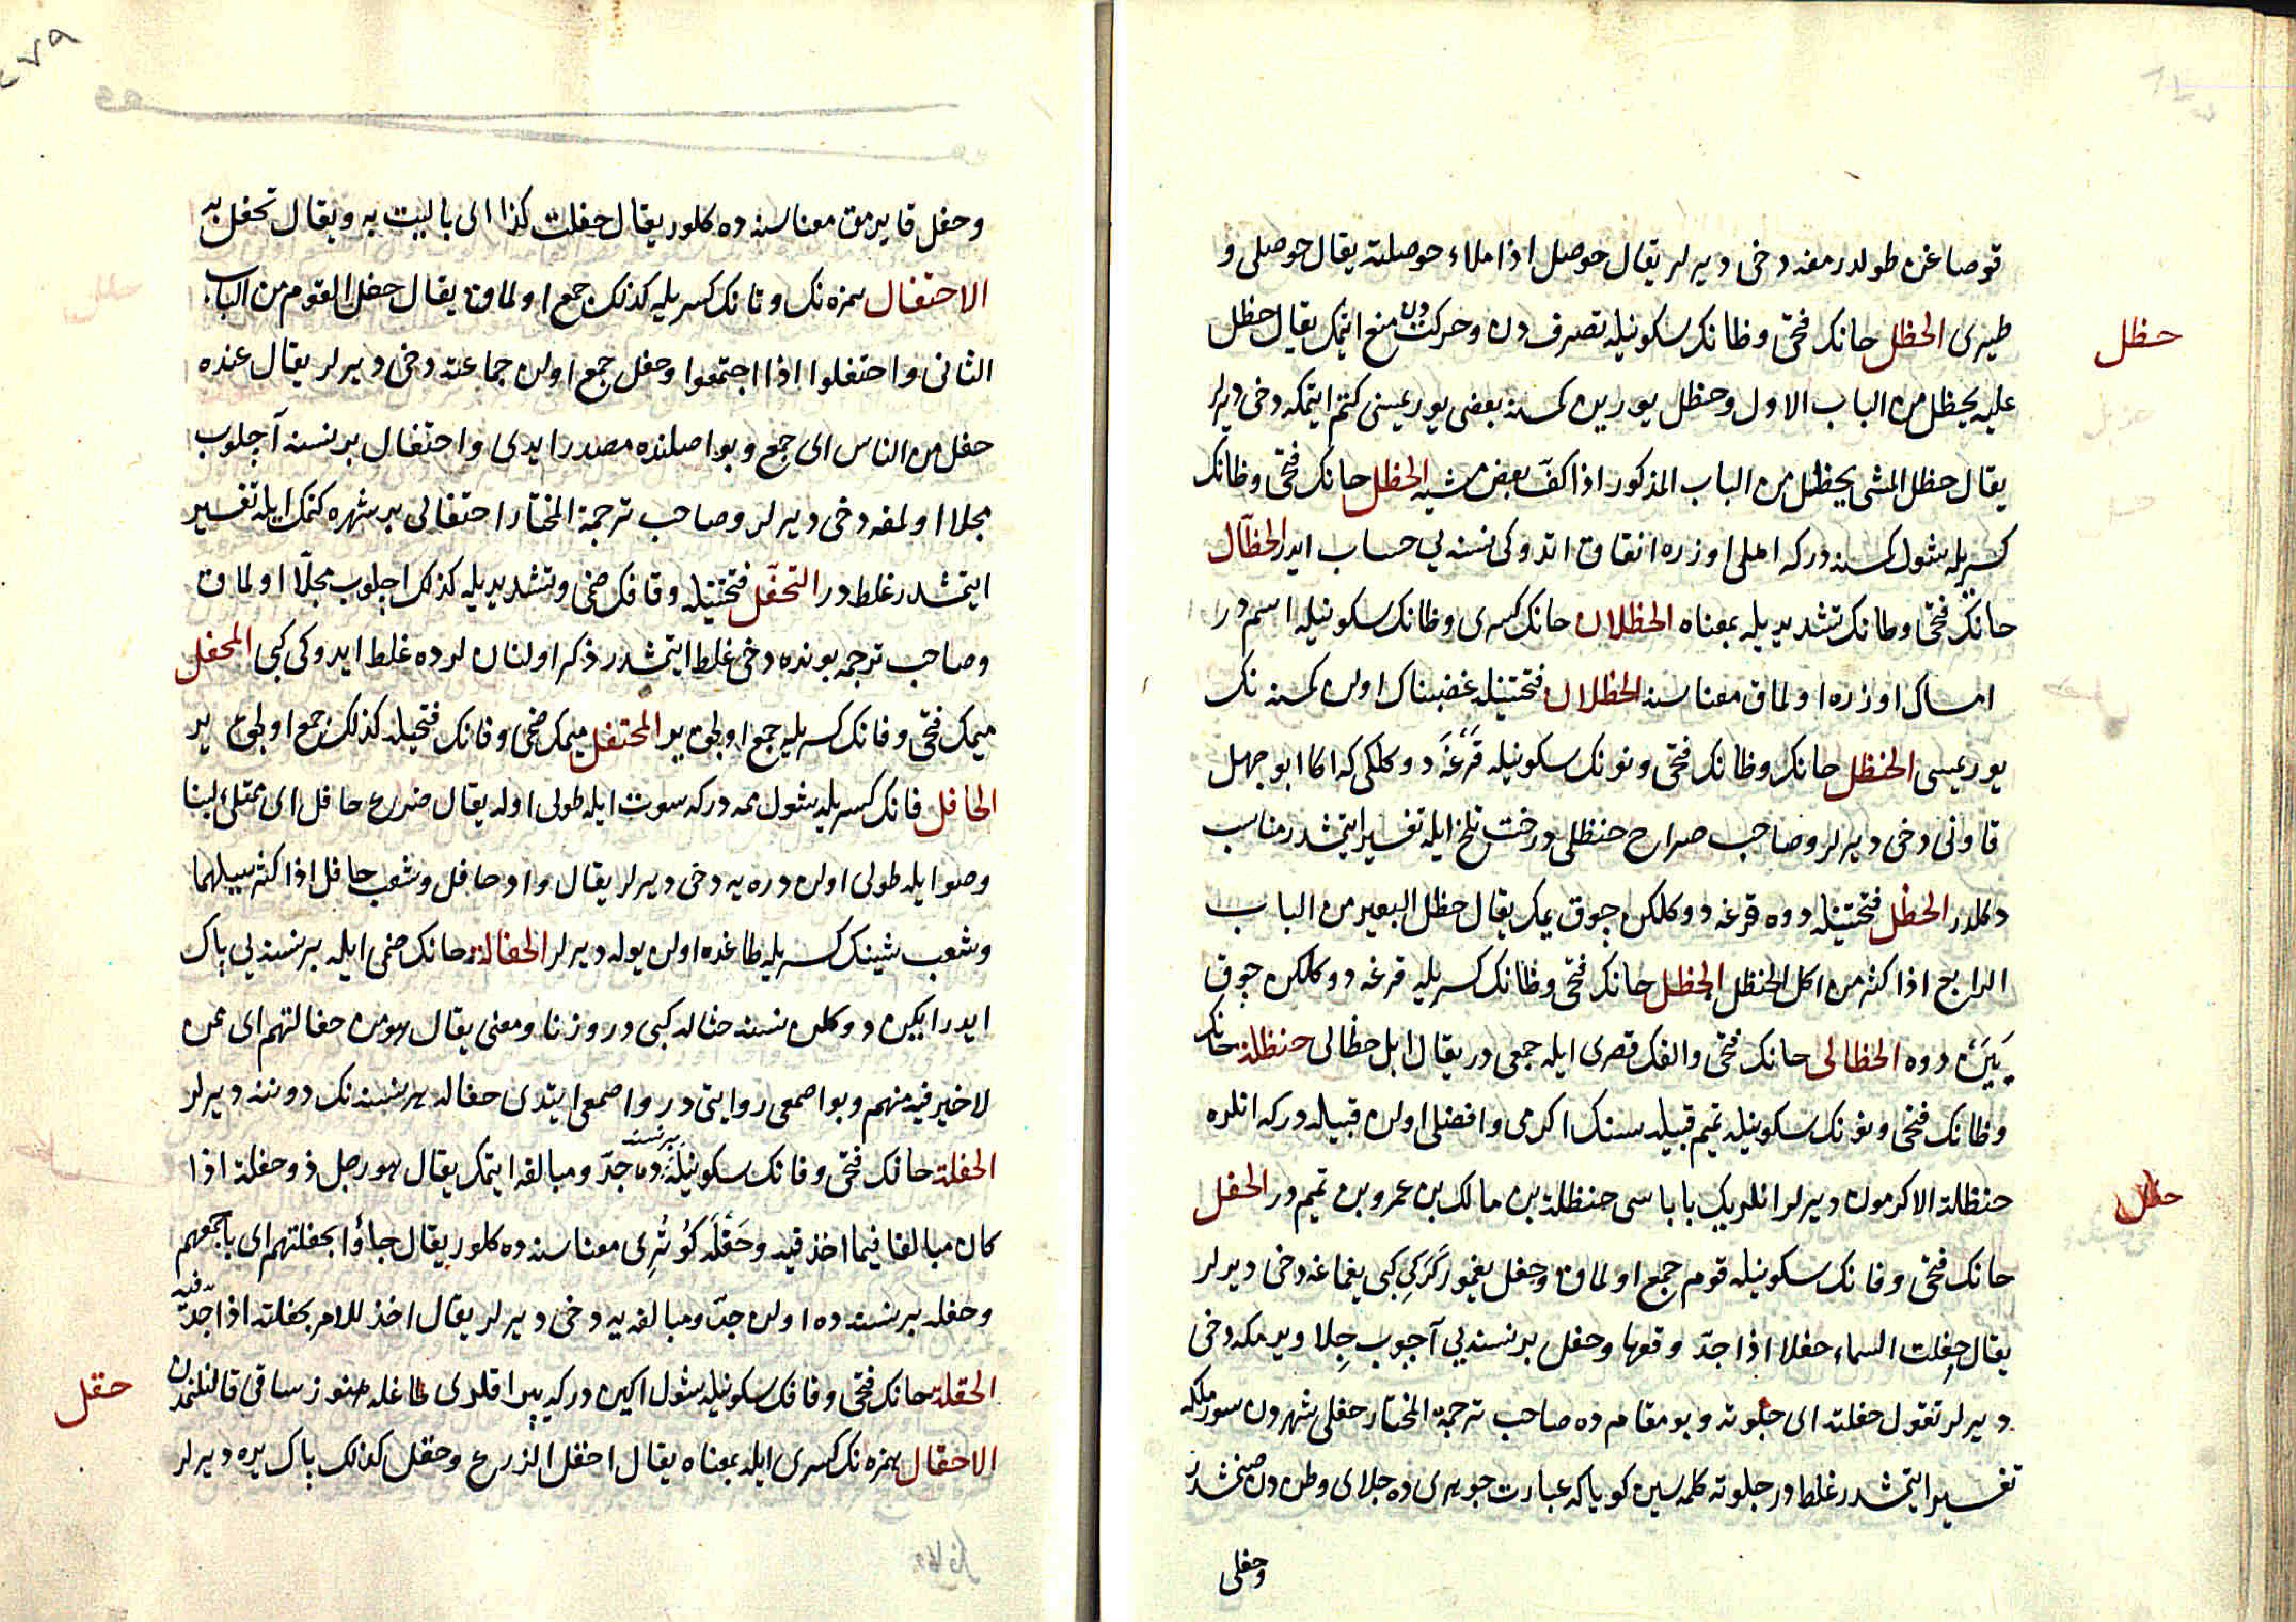 قوصاغن طولدرمغه دخى ديرلر يقال حوصل اذا ملاء حوصلته يقال حوصلى و
حظل
طيرى الحظل حانك فتحى وظانك سكونيله تصرف دن وحركت دن منع ايتمك يقال حظل
عليه يحظل من الباب الاول وحظل يورين كمسنه بعضى يوريشنى كتم ايتمكه دخى ديرلر
يقال حظل المشى يحظل من الباب المذكور اذا كفّ بعض مشيه الحظل حانك فتحى وظانك
كسريله شول كمسنه دركه اهلى اوزره انفاق اتدوكى نسنه يى حساب ايدر الحظّال
حانك فتحى وظانك تشديديله بمعناه الحظلان حانك كسرى وظانك سكونيله اسم در
امساك اوزره اولماق معناسنه الحظلان فتحتينله غضبناك اولن كمسنه نك
يوريشى الحنظل حانك وظانك فتحى ونونك سكونيله قرغه دوكلكى كه اكا ابو جهل
قاونى دخى ديرلر وصاحب صراح حنظلى درخت تلخ ايله تفسير ايتمشدر مناسب
دكلدر الحظل فتحتينله دوه قرغه دوكلكن چوق يمك يقال حظل البعير من الباب
الرابع اذا كثر من اكل الحنظل الحظل حانك فتحى وظانك كسريله قرغه دوكلكن چوق
يين دوه الحظالى حانك فتحى والفك قصرى ايله جمعى در يقال ابل حظالى حنظلة حانك
وظانك فتحى ونونك سكونيله تميم قبيله سنك اكرمى وافضلى اولن قبيله دركه انلره
حفل
حنظلة الاكرمون ديرلر انلريك باباسى حنظلة بن مالك بن عمرو بن تميم در الحفل
حانك فتحى وفانك سكونيله قوم جمع اولماق وحفل يغمور كركى كبى يغماغه دخى ديرلر
يقال حفلت السماء حفلا اذا جدّ وقعها وحفل بر نسنه يى آچوب جلا ويرمكه دخى
ديرلر تقول حفلته اى جلوته وبو مقامده صاحب ترجمة المختار حفلى شهردن سورمكله
تفسير ايتمشدر غلطدر جلوته كلمه سين كويا كه عبارت جوهرى ده جلاى وطن دن صنمشدر
وحفلى
وحفل قايرمق معناسنه ده كلور يقال حفلت كذا اى باليت به ويقال تحفل به
الاحتفال همزه نك وتانك كسريله كذلك جمع اولماق يقال حفل القوم من الباب
الثانى واحتفلوا اذا اجتمعوا وحفل جمع اولن جماعته دخى ديرلر يقال عنده
حفل من الناس اى جمع وبو اصلنده مصدر ايدى واحتفال بر نسنه آچلوب
مجلا اولمغه دخى ديرلر وصاحب ترجمة المختار احتفالى بر شهره كتمك ايله تفسير
ايتمشدر غلطدر التحفّل فتحتينله وفانك ضمى وتشديديله كذلك اچلوب مجلّا اولماق
وصاحب ترجمه بونده دخى غلط ايتمشدر ذكر اولنان لرده غلط ايدوكى كبى المحفل
ميمك فتحى وفانك كسريله جمع اولجق ير المحتفل ميمك ضمى وفانك فتحيله كذلك جمع اولجق ير
الحافل فانك كسريله شول ممه دركه سوت ايله طولى اوله يقال ضرع حافل اى ممتلئ لبنا
وصو ايله طولى اولن دره يه دخى ديرلر يقال واد حافل وشعب حافل اذا كثر سيلهما
وشعب شينك كسريله طاغده اولن يوله ديرلر الحفالة حانك ضمى ايله بر نسنه يى پاك
ايدرايكن دوكلن نسنه حثاله كبى در وزنا ومعنى يقال هو من حفالتهم اى ممن
لا خير فيه منهم وبو اصمعى روايتى در و اصمعى ايتدى حفاله هر نسنه نك دوننه ديرلر
الحفلة حانك فتحى وفانك سكونيله بر نسنه ده جدّ ومبالغه ايتمك يقال هو رجل ذو حفلة اذا
كان مبالغا فيما اخذ فيه وحفله كوثرى معناسنه ده كلور يقال جاؤا بحفلتهم اى باجمعهم
وحفله بر نسنه ده اولن جدّ ومبالغه يه دخى ديرلر يقال اخذ للامر بحفلته اذا جدّ فيه
حقل
الحقلة حانك فتحى وقافك سكونيله شول اكين دركه يپراقلرى طاغله هنوز ساقى قالنلنمدن
الاحقال همزه نك كسرى ايله بمعناه يقال احقل الزرع وحقل كذلك پاك يره ديرلر